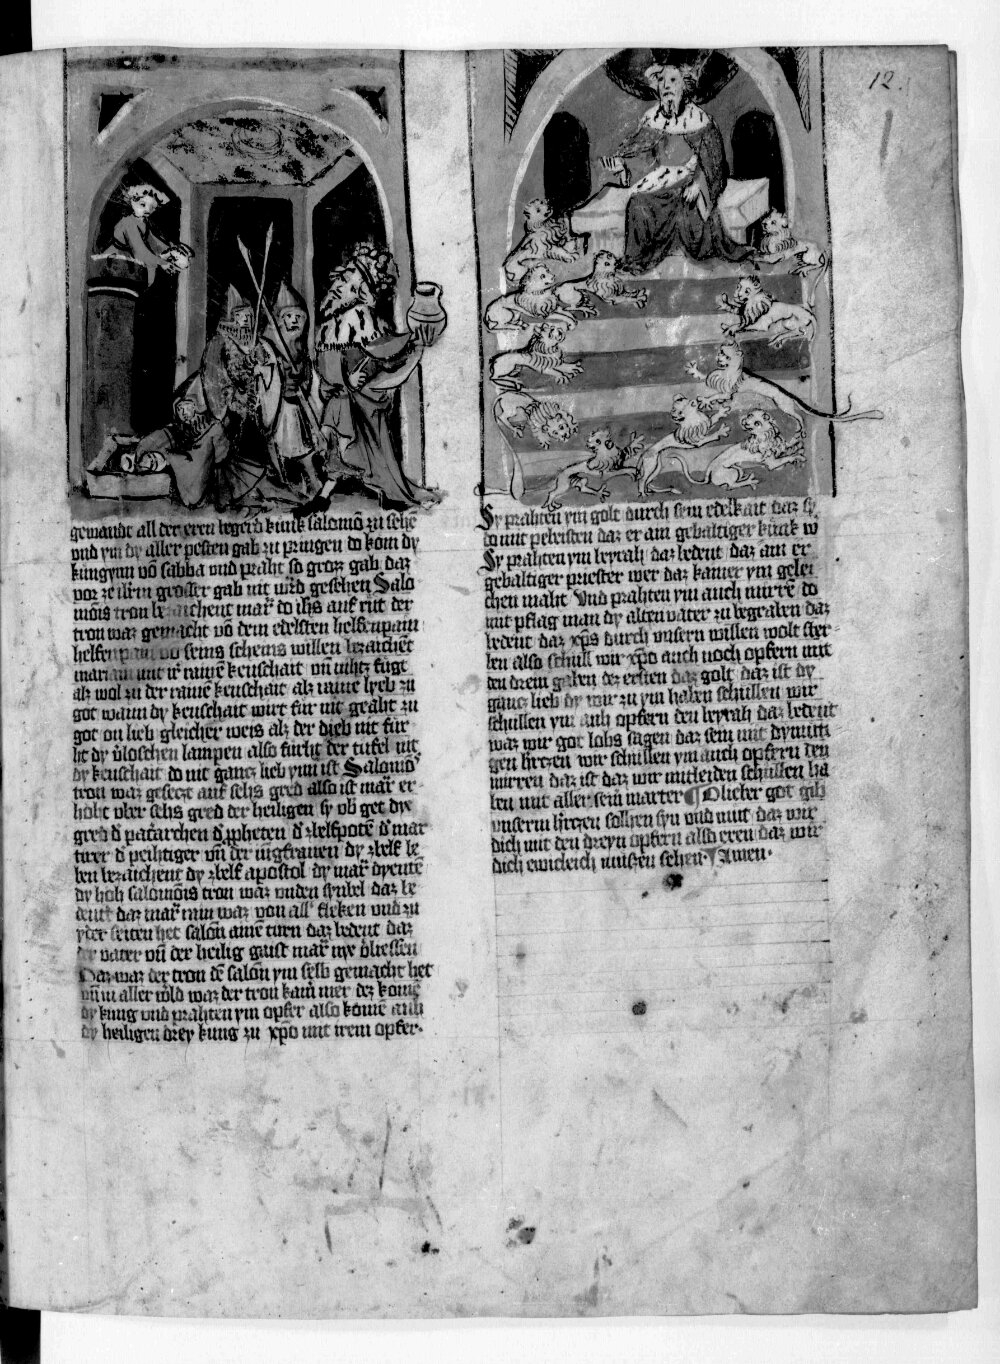 12.
gewandt all der eren begerd künik salomō zu sehē
vnd ym dy aller pesten gab zu pringen do kom dy
küngynn vō sabba vnd praht so grozz gab daz
vor ze grosser gab nit w̄rd gesehen Salo
mōis tron bezaichent mar̄ do ihs auf rut der
tron waz gemacht vō dem edelsten helfenpain
helfenpain vō seins scheins willen bezaichēt
mariam mit ir̄ rainē keuschait vn̄ nihtz fügt
alz wol zu der rainē keuschait alz raine lyeb zu
got wann dy keuschait wirt für nit geaht zu
got on lieb gleicher weis alz der dieb nit für
ht dy v̄loschen lampen also fürht der tüfel nit
dy keuschait do nit gancz lieb ynn ist Salomōs
tron waz geseczt auf sehs gred also ist mar̄ er
höht vber sehs gred der heiligen sy vb̄ get dye
gred d̄ pat̄archen d̄ ꝓpheten d̄ zbelfpotē d̄ mar
tirer d̄ peihtiger vn̄ der iūgfrauen dy zbelf le
ben bezaichent dy zbelf apostol dy mar̄ dyentē
dy höh salomōis tron waz vnden synbel daz be
deutt daz mar̄ rain waz von all̄ fleken vnd zu
yder seiten het salōn ainē turn daz bedeut daz
der vater vn̄ der heilig gaist mar̄ nye v̄liessen
Daz waz der tron dē salōn ym selb gemacht het
vn̄ in aller w̄ld waz der tron kain mer dez komē
dy küng vnd prahten ym opfer also komē auh
dy heiligen drey küng zu xp̄o mit irem opfer.
Sy prahten ym golt durch sein edelkait daz sy
do mit peweisten daz er ain gebaltiger künk w
Sy prahten ym weyrah daz bedeut daz ain er
gebaltiger priester wer daz kainer ym gelei
chen maht Vnd prahten ym auch mirre do
mit pflag man dy alten vater zu begraben daz
bedeut daz xp̄s durch vnsern willen wolt ster-
ben also schull wir xp̄o auch noch opfern mit
den drein gaben dez ersten daz golt daz ist dy
gancz lieb dy wir zu ym haben schüllen wir
schüllen ym auh opfern den weyrah daz bedeut
waz wir got lobs sagen daz sein mit dymütt
gen h̄rczen wir schüllen ym auch opfern den
mirren daz ist daz wir mitleiden schüllen ha
ben mit aller sein̄ marter ¶ O lieber got gib
vnserm h̄rczen solhen syn vnd mut daz wir
dich mit den dreyn opfern also eren daz wir
dich ewicleich müszen sehen. ¶ Amen.